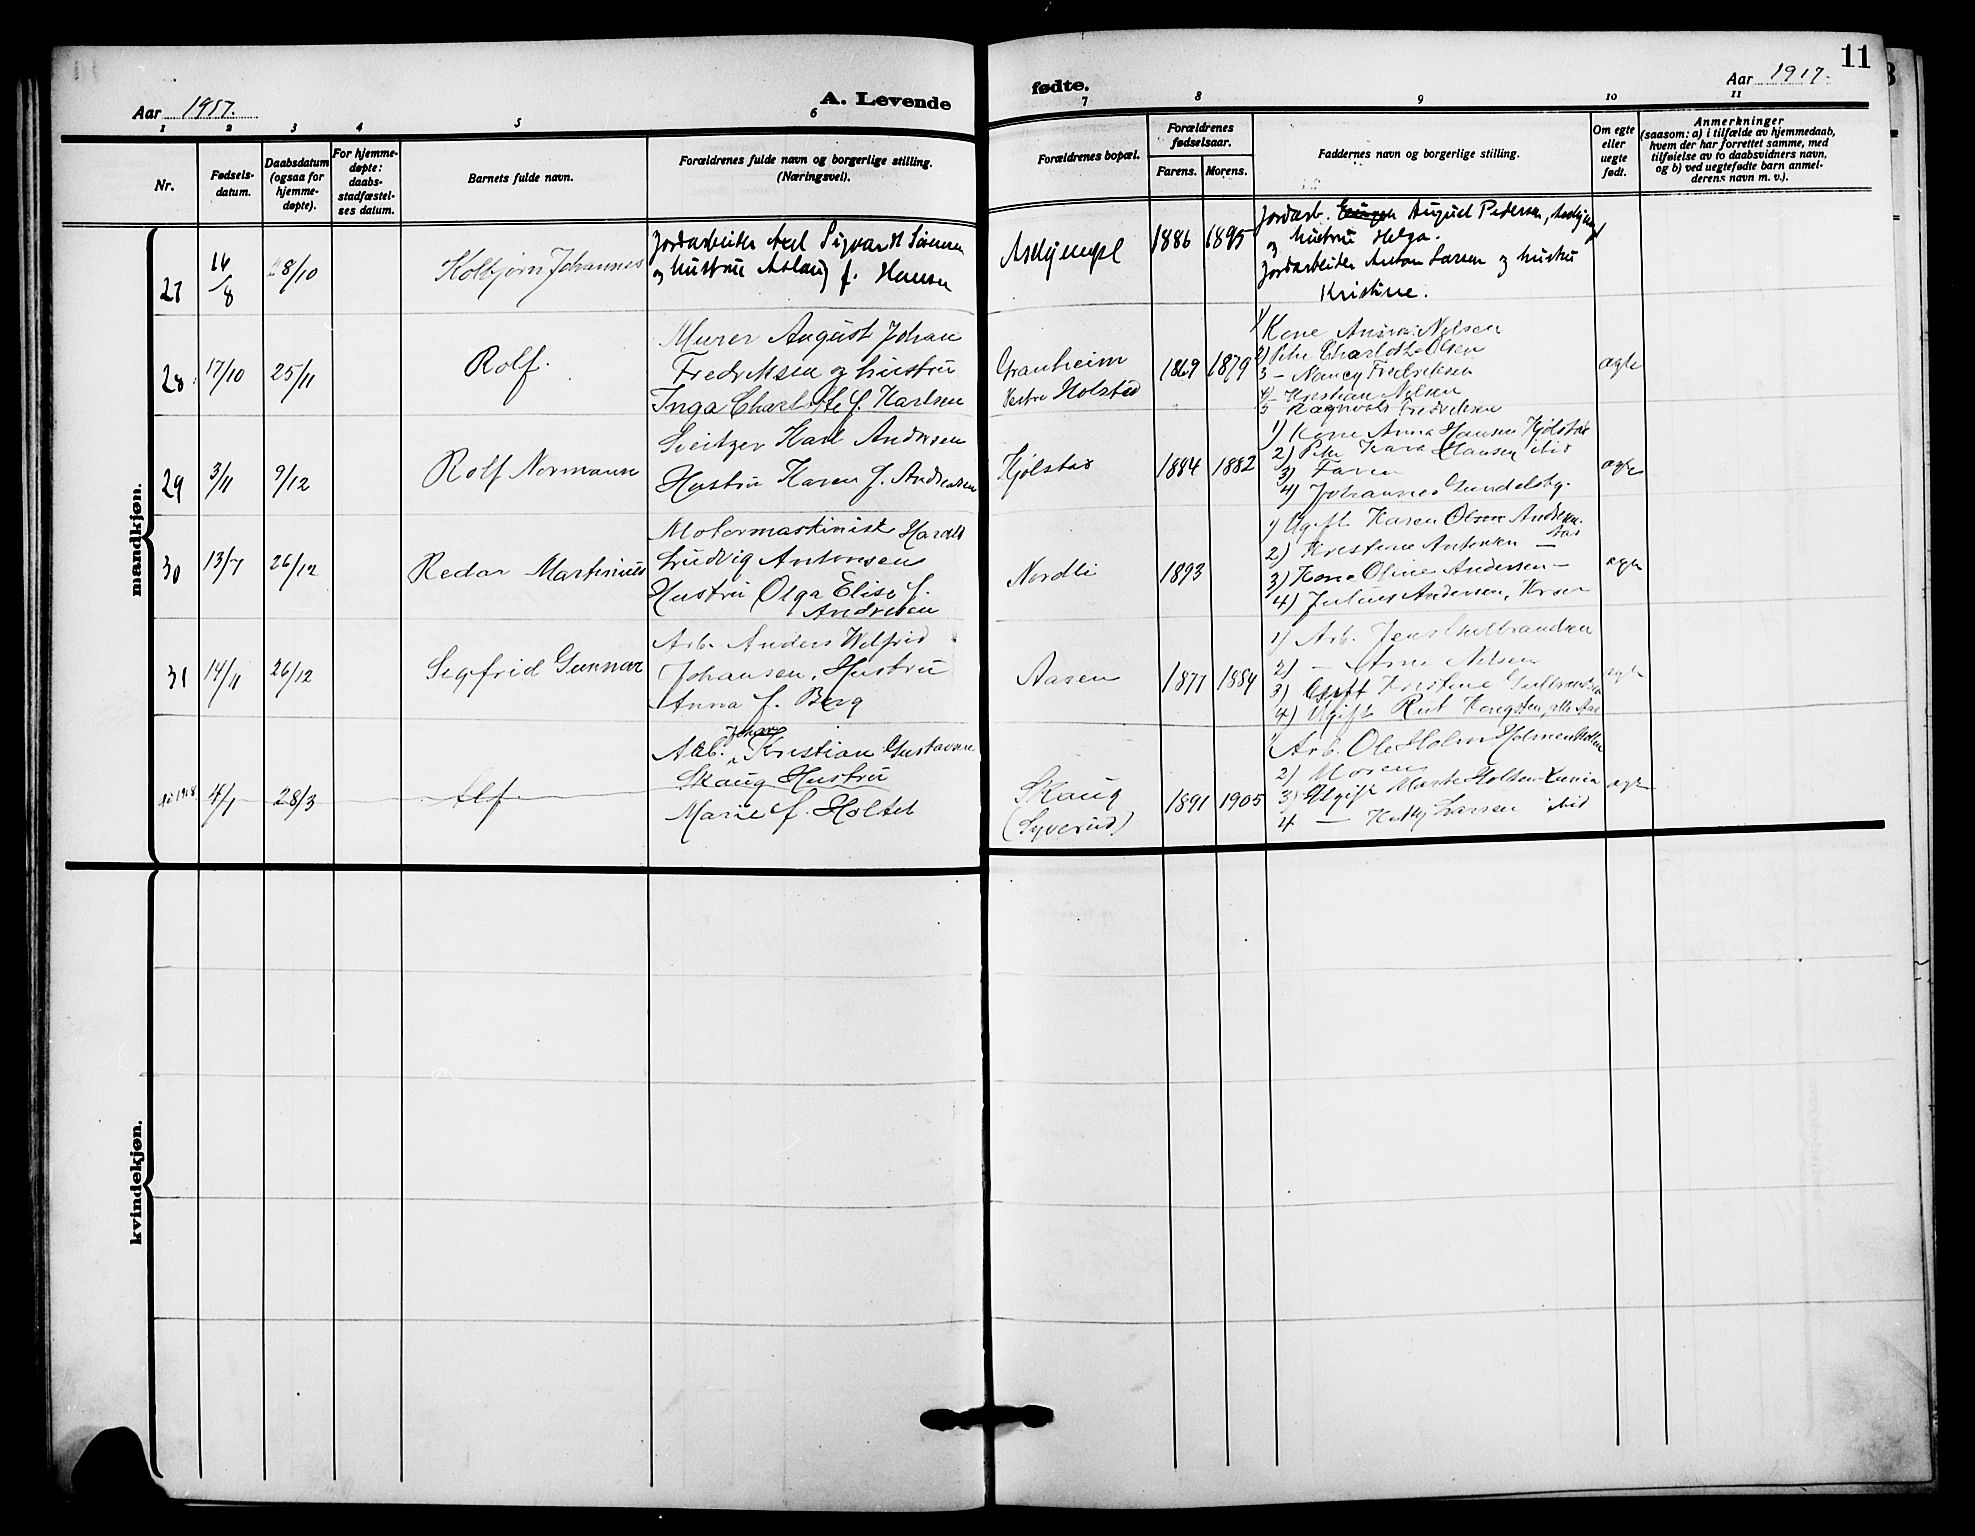 11
Aar 1917.
A. Levende
fødte.
Aar 1917.
1 2 3 4 5 6 7 8 9 10 11
Nr.
Fødsels-
datum.
Daabsdatum
(ogsaa for
hjemme-
døpte).
For hjemme-
døpte:
daabs-
stadfæstel-
ses datum.
Barnets fulde navn.
Forældrenes fulde navn og borgerlige stilling.
(Næringsvei).
Forældrenes bopæl.
Forældrenes
fødselsaar.
Farens. Morens.
Faddernes navn og borgerlige stilling.
Om egte
eller
uegte
født.
Anmerkninger
(saasom: a) i tilfælde av hjemmedaab,
hvem der har forrettet samme, med
tilføielse av to daabsvidners navn,
og b) ved uegtefødte barn anmel-
derens navn m. v.).
mandkjøn.
27
16/8
28/10
Kolbjørn Johannes
Jordarbeider Axel Sigvardt Sørensen
og hustru Aslaug f. Hansen
1886 1895
Jordarb. August Pedersen,
og hustru Helga.
Jordarbeider Anton Larsen og hustru
Kristine.
28
17/10
25/11
Rolf.
Murer August Johan
Fredriksen og hustru
Inga Charlotte f. Karlsen
Granheim
Vestre Holstad
1869 1879
1) Kone Nilsen
2) Pike Charlotte Olsen
3 - Nancy Fredriksen
4) Kristian Nilsen
5 Ragnvald Fredriksen
ægte
29
3/11
9/12
Rolf Normann
Sveitzer Karl Andersen
Hustru Karen f. Andreassen
Kjølstad
1884 1882
1) Kone Anna Hansen Kjølstad
2) Pike Hansen ibid
3) Faren
4) Johannes Gundelsby.
ægte
30
13/7
26/12
Redar Martinius
Motormaskinist Harald
Ludvig Antonsen
Hustru Olga Elise f.
Andresen
Nordli
1893
1) Ugift Karen Olsen
2) Kristine Antonsen —
3) Kone Oline Andersen —
4) Julius Andersen,
ægte
31
14/11
26/12
Segfrid Gunnar
Arb. Anders Wilfrid
Johansen, Hustru
Anna f. Berg
Aasen
1877 1884
1) Arb. Jens Gulbrandsen
2) — Arne Nilsen
3) Gift Kristine Gulbrandsen
4) Ugift Rut Kongsten, alle Aas
ægte
1918
4/1
28/3
Alf
Arb. Johan Kristian Gustavsen
Skaug Hustru
Marie f. Holtet
Skaug
(Syverud)
1891 1905
1) Arb. Ole Holm Holmen
2) Moren
3) Ugift Marte Holten
4 — Larsen ibid
ægte
kvindekjøn.